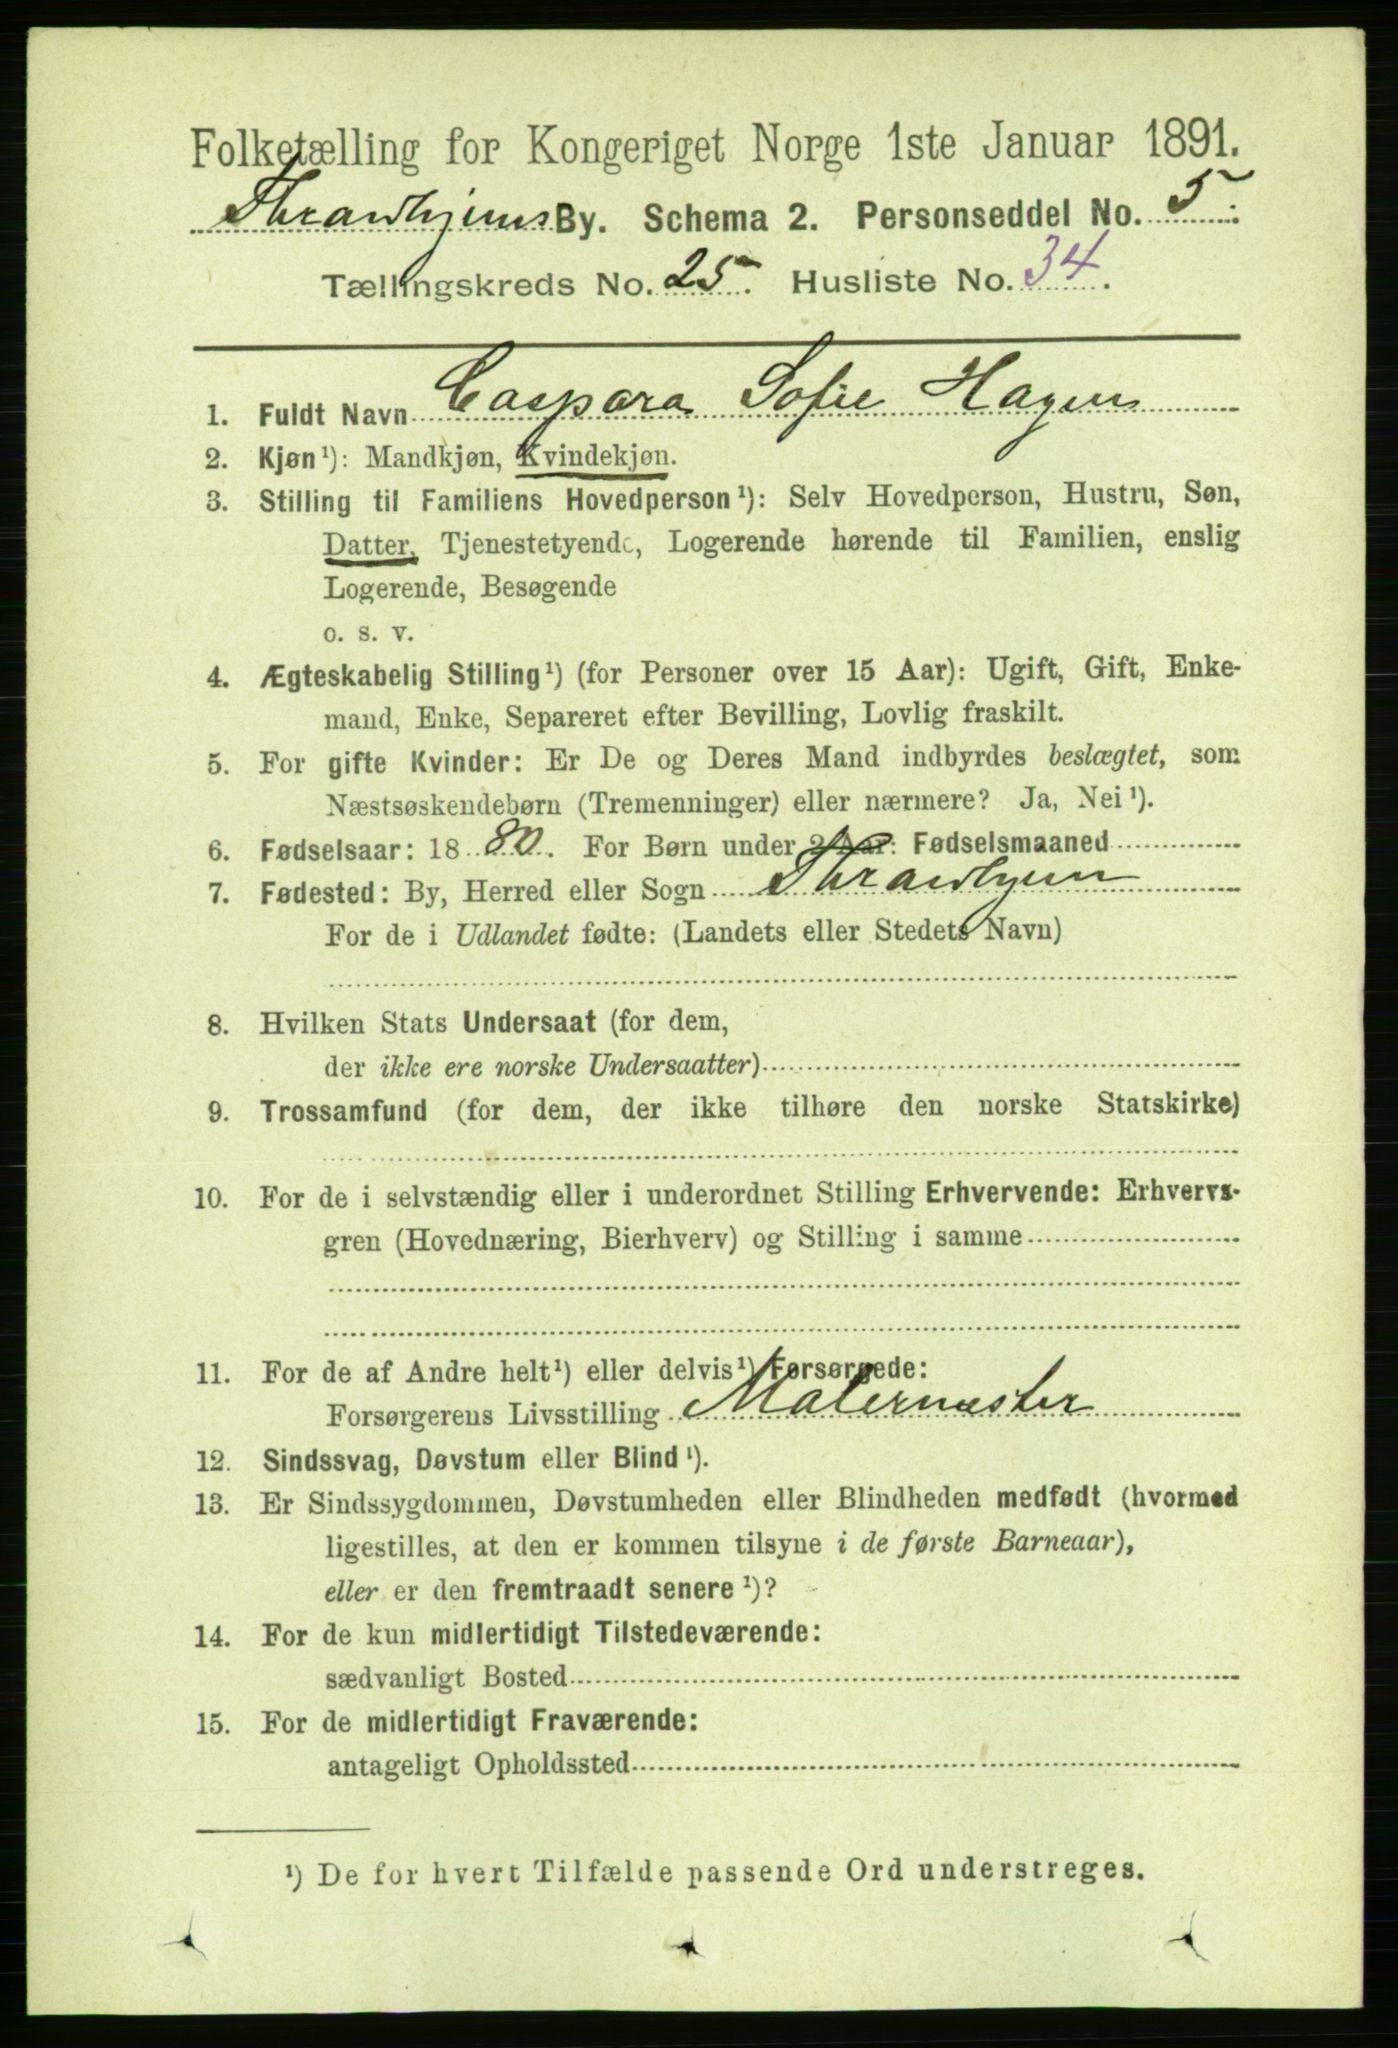 Folketælling for Kongeriget Norge 1ste Januar 1891.
Thrandhjems By. Schema 2. Personseddel No. 5.
Tællingskreds No. 25. Husliste No. 34.
1. Fuldt Navn Caspara Sofie Hagen
2. Kjøn¹): Mandkjøn, Kvindekjøn.
3. Stilling til Familiens Hovedperson¹): Selv Hovedperson, Hustru, Søn,
Datter, Tjenestetyende, Logerende hørende til Familien, enslig
Logerende, Besøgende
o. s. v.
4. Ægteskabelig Stilling¹) (for Personer over 15 Aar): Ugift, Gift, Enke-
mand, Enke, Separeret efter Bevilling, Lovlig fraskilt.
5. For gifte Kvinder: Er De og Deres Mand indbyrdes beslægtet, som
Næstsøskendebørn (Tremenninger) eller nærmere? Ja, Nei¹).
6. Fødselsaar: 1880. For Børn under 2 Aar: Fødselsmaaned
7. Fødested: By, Herred eller Sogn Thrandhjem
For de i Udlandet fødte: (Landets eller Stedets Navn)
8. Hvilken Stats Undersaat (for dem,
der ikke ere norske Undersaatter)
9. Trossamfund (for dem, der ikke tilhøre den norske Statskirke)
10. For de i selvstændig eller i underordnet Stilling Erhvervende: Erhvervs-
gren (Hovednæring, Bierhverv) og Stilling i samme
11. For de af Andre helt¹) eller delvis¹) Forsørgede:
Forsørgerens Livsstilling Malermester
12. Sindssvag, Døvstum eller Blind¹).
13. Er Sindssygdommen, Døvstumheden eller Blindheden medfødt (hvormed
ligestilles, at den er kommen tilsyne i de første Barneaar),
eller er den fremtraadt senere¹)?
14. For de kun midlertidigt Tilstedeværende:
sædvanligt Bosted
15. For de midlertidigt Fraværende:
antageligt Opholdssted
¹) De for hvert Tilfælde passende Ord understreges.